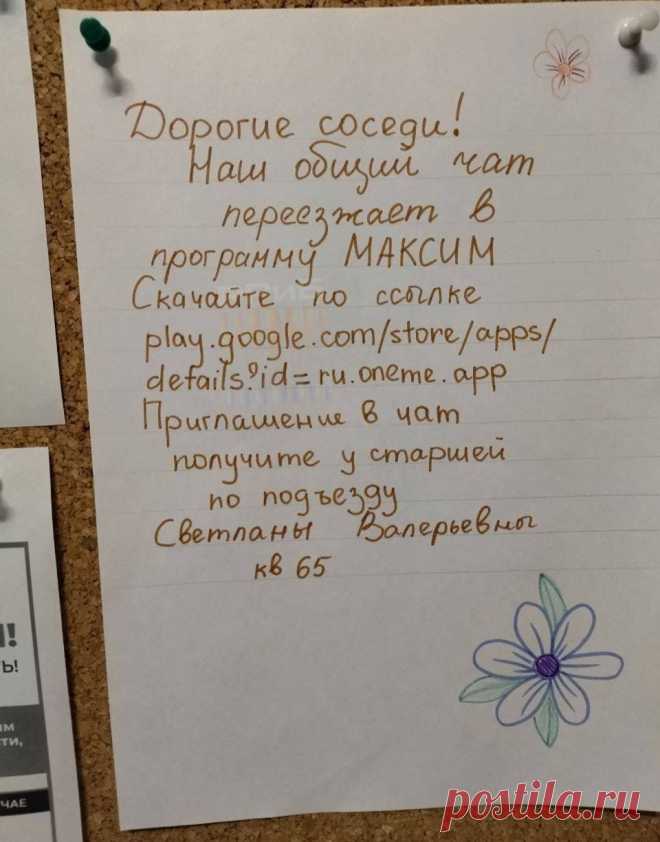 Дорогие соседи!
Наш общий чат
переезжает в
программу МАКСИМ
Скачайте по ссылке
play.google.com/store/apps/
details?id=ru.oneme.app
Приглашение в чат
получите у старшей
по подъезду
Светланы Валерьевны
кв 65
!
Ь!
ИМ
СТИ,
ЧАЕ
postila.ru